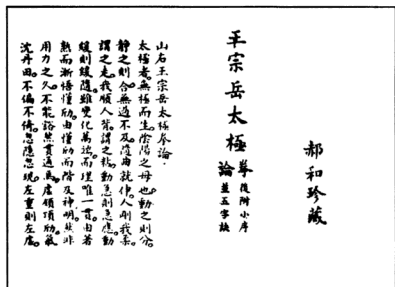 郝和珍藏
王宗岳太極拳論
後附小序
並五字訣
山右王宗岳太極拳論
太極者無極而生陰陽之母也動之則分
靜之則合無過不及隨曲就伸人剛我柔
謂之走我順人背謂之粘動急則急應動
緩則緩隨雖變化萬端而理唯一貫由著
熟而漸悟懂勁由懂勁而階及神明然非
用力之久不能豁然貫通焉虛領頂勁氣
沈丹田不偏不倚忽隱忽現左重則左虛